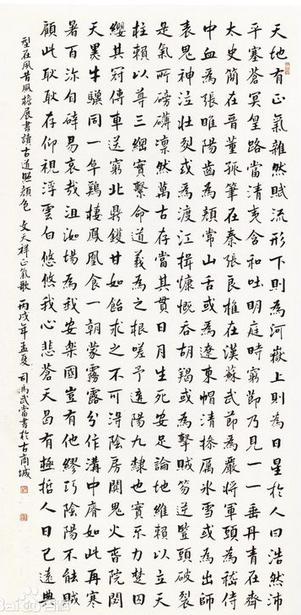 天地有正氣雜然賦流形下則為河嶽上則為日星於人曰浩然沛
乎塞蒼冥皇路當清夷含和吐明庭時窮節乃見一一垂丹青在齊
太史簡在晉董狐筆在秦張良椎在漢蘇武節為嚴將軍頭為嵇侍
中血為張睢陽齒為顏常山舌或為遼東帽清操厲冰雪或為出師
表鬼神泣壯烈或為渡江楫慷慨吞胡羯或為擊賊笏逆豎頭破裂
是氣所磅礴凜然萬古存當其貫日月生死安足論地維賴以立天
柱賴以尊三綱實繫命道義為之根嗟予遘陽九隸也實不力楚囚
纓其冠傳車送窮北鼎鑊甘如飴求之不可得陰房闃鬼火春院閟
天黑牛驥同一皁雞棲鳳凰食一朝蒙霧露分作溝中瘠如此再寒
暑百沴自辟易哀哉沮洳場為我安樂國豈有他繆巧陰陽不能賊
顧此耿耿存仰視浮雲白悠悠我心悲蒼天曷有極哲人日已遠典
型在夙昔風檐展書讀古道照顏色 文天祥正氣歌 丙戌年孟夏 司馬武當書於古商城
Bai百科